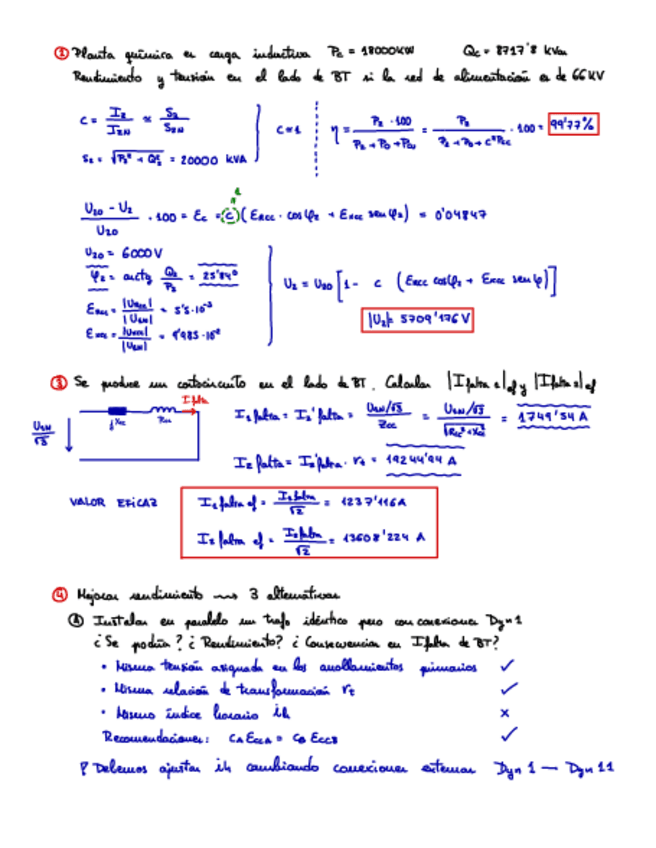 ② Planta química en carga inductiva P₂ = 18000KW Q₂ = 8717'8 KVAr
Rendimiento y tensión en el lado de BT si la red de alimentación es de 66KV
C = I₂ / I₂N ≈ S₂ / S₂N
C ≈ 1
η = P₂ · 100 / (P₂ + P₀ + Pcu) = P₂ / (P₂ + P₀ + C²Pcc) · 100 = 99'77%
S₂ = √(P₂² + Q₂²) = 20000 KVA
(U₂₀ - U₂) / U₂₀ · 100 = εc = C (εRcc · cosφ₂ + εXcc senφ₂) = 0'04847
U₂₀ = 6000V
φ₂ = arctg Q₂ / P₂ = 25'84º
εRcc = |URcc| / |U₁N| = 5'5·10⁻³
εXcc = |UXcc| / |U₁N| = 9'985·10⁻²
U₂ = U₂₀ [1 - C (εRcc cosφ₂ + εXcc senφ)]
|U₂| = 5709'176 V
③ Se produce un cortocircuito en el lado de BT. Calcular |I falta 1|ef y |I falta 2|ef
I falta
U₁N / √3
jXcc
Rcc
I₁ falta = I₂' falta = U₁N/√3 / Zcc = U₁N/√3 / √(Rcc² + Xcc²) = 1749'54 A
I₂ falta = I₂' falta · rt = 19244'94 A
VALOR EFICAZ
I₁ falta ef = I₁ falta / √2 = 1237'116A
I₂ falta ef = I₂ falta / √2 = 13608'224 A
④ Mejorar rendimiento ⟿ 3 alternativas
Ⓐ Instalar en paralelo un trafo idéntico pero con conexiones Dyn1
¿Se podría? ¿Rendimiento? ¿Consecuencias en I falta de BT?
• Misma tensión asignada en los arrollamientos primarios ✓
• Misma relación de transformación rt ✓
• Mismo índice horario ih ✗
Recomendaciones: CA εccA = CB εccB ✓
Debemos ajustar ih cambiando conexiones externas Dyn 1 — Dyn 11